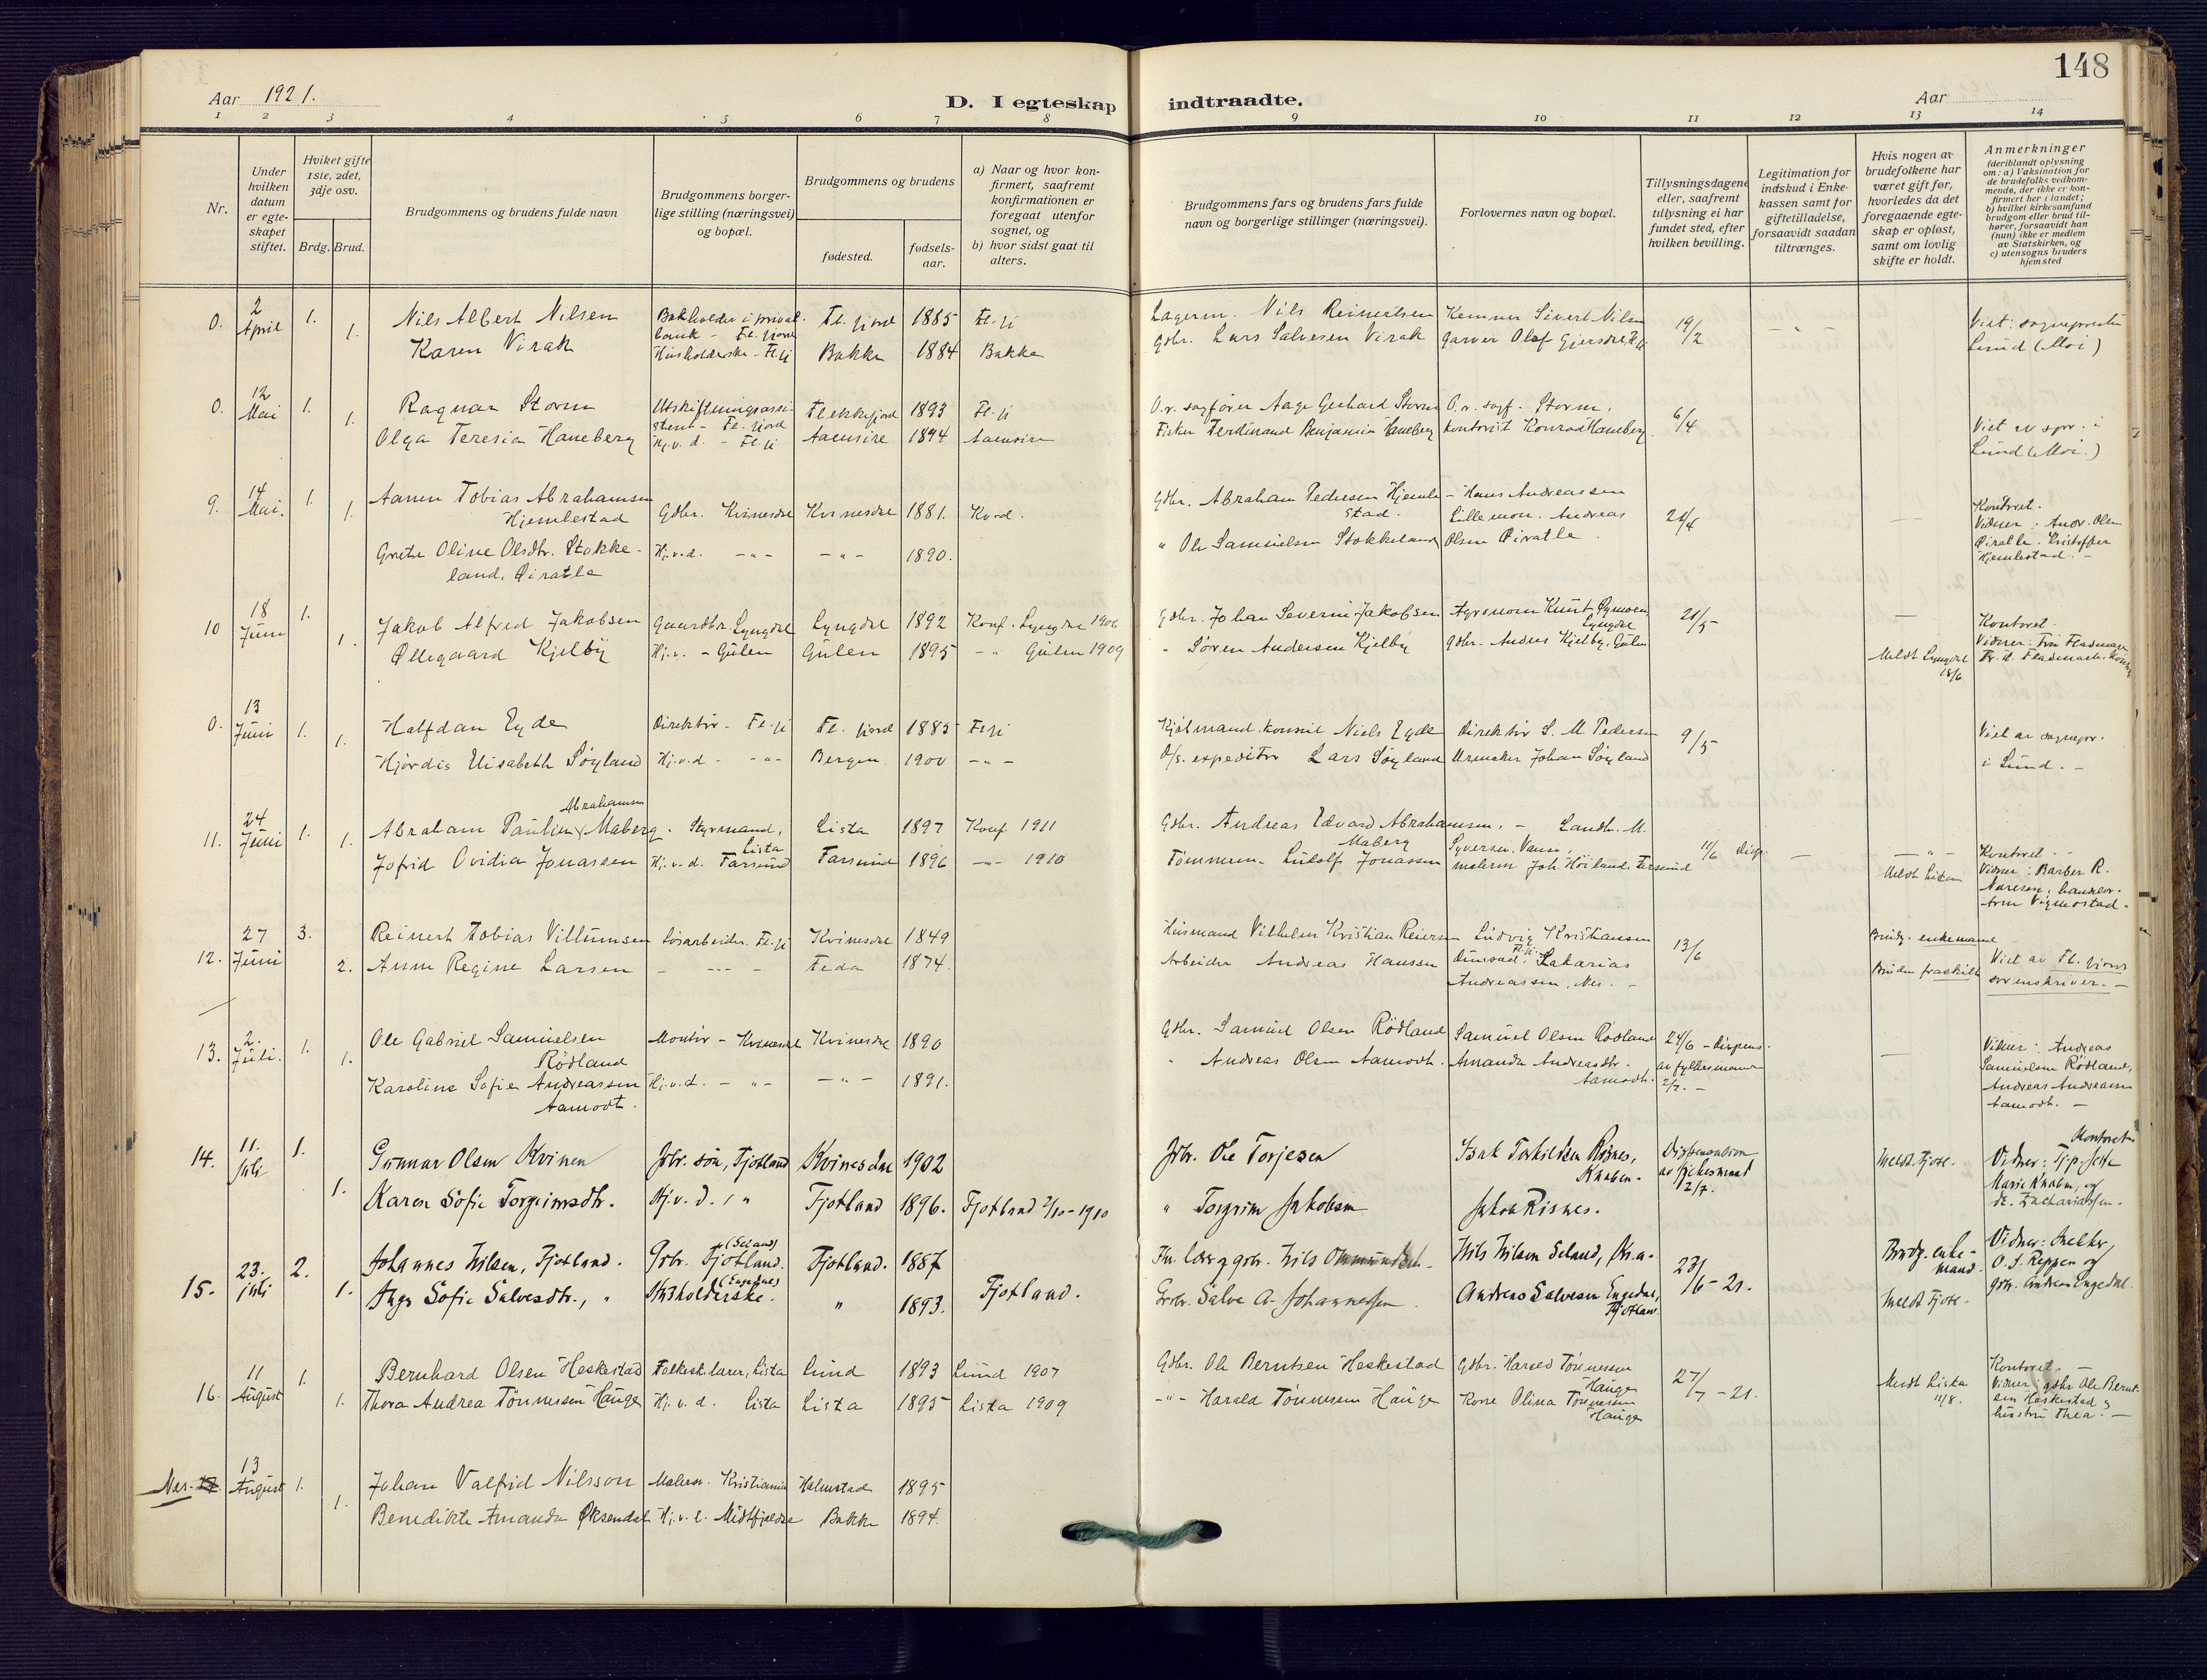 148
Aar 1921.
D. I egteskap indtraadte.
Aar
1 2 3 4 5 6 7 8 9 10 11 12 13 14
Nr.
Under hvilken datum er egteskapet stiftet.
Hviket gifte 1ste, 2det, 3dje osv.
Brdg. Brud.
Brudgommens og brudens fulde navn
Brudgommens borgerlige stilling (næringsvei) og bopæl.
Brudgommens og brudens
fødested.
fødselsaar.
a) Naar og hvor konfirmert, saafremt konfirmationen er foregaat utenfor sognet, og
b) hvor sidst gaat til alters.
Brudgommens fars og brudens fars fulde navn og borgerlige stillinger (næringsvei).
Forlovernes navn og bopæl.
Tillysningsdagene eller, saafremt tillysning ei har fundet sted, efter hvilken bevilling.
Legitimation for indskud i Enkekassen samt for giftetilladelse, forsaavidt saadan tiltrænges.
Hvis nogen av brudefolkene har været gift før, hvorledes da det foregaaende egteskap er opløst, samt om lovlig skifte er holdt.
Anmerkninger
(deriblandt oplysning om: a) Vaksination for de brudefolks vedkommende, der ikke er konfirmert her i landet; b) hvilket kirkesamfund brudgom eller brud tilhører, forsaavidt han (hun) ikke er medlem av Statskirken, og c) utensogns bruders hjemsted
0. 2 April 1. Nils Albert Nilsen Bokholder i privatbank - Fl. fjord Fl. fjord 1885 Fl. fj Lagerm. Nils Reinertsen Kemner Sivert Nilsen 19/2 Viet: sognepresten
1. Karen Virak Husholderske - Fl. fj Bakke 1884 Bakke Gdbr. Lars Salvesen Virak Garver Olaf Gjersdal, Fl. fj Lund (Moi)
0. 12 Mai 1. Ragnar Storm Utskiftningsassistent - Fl. fjord Flekkefjord 1893 Fl. fj O.r. sagfører Aage Gerhard Storm O.r. sagf. Storm. 6/4 Viet av spr. i
1. Olga Teresia Haneberg Hj.v.d. - Fl. fj Aaensire 1894 Aaensire Fisker Ferdinand Benjamin Haneberg Kontorist Konrad Haneberg. Lund (Moi.)
9. 14 Mai. 1. Aanen Tobias Abrahamsen Hjemlestad Gdbr. Kvinesdal Kvinesdal 1881. Kvd. Gdbr. Abraham Pedersen Hjemlestad. Hans Andreassen Lillemon. Andreas Olsen Øiratle. 21/4 Kontoret. Vidner: Andr. Olsen Øiratle. Kristoffer Hjemlestad. -
1. Grete Oline Olsdtr. Stokkeland. Øiratle Hj.v.d. -"- -"- 1890. " Ole Samuelsen Stokkeland
10 18 Juni 1. Jakob Alfred Jakobsen Gaardbr. Lyngdal Lyngdal 1892 Konf. Lyngdal 1906 Gdbr. Johan Severin Jakobsen Agronom Kunt Lyngdal 21/5 Kontoret.
1. Øllegaard Kjelby Hj.v. - Gulen Gulen 1895 -"- Gulen 1909 " Søren Andersen Kjelby Gdbr. Anders Kjelby, Gulen Meldt Lyngdal 18/6
0. 13 Juni 1. Halfdan Eyde Direktør - Fl. fj Fl. fjord 1885 Fl. fj Kjøbmand, konsul Niels Eyde Direktør S. M. Pedersen 9/5 Viet av sognepr.
1. Hjørdis Elisabeth Søyland Hj.v.d. -"- Bergen 1900 -"- D/s. expeditør Lars Søyland Urmaker Johan Søyland i Lund. -
11. 24 Juni 1. Abraham Paulin Abrahamsen Maberg. Styrmand, Lista Lista 1897 Konf. 1911 Gdbr. Andreas Edvard Abrahamsen. Maberg Landh. M. Syversen, Vanse, 11/6 disp. Kontoret
1. Jofrid Ovidia Jonassen Hj.v.d. Farsund Farsund 1896 -"- 1910 Tømmerm. Ludolf Jonassen malerm. Joh. Høiland, Farsund Meldt Lista Vidner: Barber R.
12. 27 Juni 3. Reinert Tobias Villumsen Løsarbeider. Fl. fj Kvinesdal 1849 Husmand Vilhelm Kristian Reiersen Ludvig Kristiansen 13/6 Brudg. enkemand Viet av Fl. fjords
2. Anna Regine Larsen - "- - Feda 1874. Arbeider Andreas Hansen Zakarias Andreassen, Nes. - Bruden fraskilt sorenskriver. -
13. 2. Juli. 1. Ole Gabriel Samuelsen Rödland Montör - Kvinesdal Kvinesdal 1890 Gdbr. Samuel Olsen Rödland Samuel Olsen Rödland 24/6 - Dispens. av fylkesmand 2/7. - Vidner: Andreas Samuelsen Rödland, Andreas Andreassen Aamodt. -
1. Karoline Sofie Andreassen Aamodt. Hj.v.d. - "- -"- 1891. " Andreas Olsen Aamodt. Amanda Andreasdtr. Aamodt.
14. 11. Juli 1. Gunnar Olsen Kvinen Gbr. søn, Fjotland Kvinesdal 1902 Gbr. Ole Torjesen Isak Torkildsen Risnes, Knaben. Dispensation av fylkesmand 2/7. Meldt Fjotl. Kontoret. Vidner:
1. Karen Sofie Torgrimsdtr. Hj.v.d. " Fjotland 1896. Fjotland 2/10 - 1910 " Torgrim Jakobsen Jakob Risnes. Marie Knaben, og
15. 23. Juli 2. Johannes Nilsen, Fjotland. Gbr. (Seland) Fjotland. Fjotland. 1887 Nils Nilsen Seland, 23/6 - 21. Brudg. enkemand. Vidner: O. S. Reppen og gbr. Andreas Engedal.
1. Inga Sofie Salvesdtr., " Husholderske. (Engedal) " 1893. Fjotland. Gbr. Salve A. Johannessen Andreas Salvesen Engedal, Fjotland Meldt Fjotl.
16. 11 August 1. Bernhard Olsen Heskestad Folkesk.lærer, Lista Lund 1893 Lund 1907 Gdbr. Ole Berntsen Heskestad Gdbr. Harald Tønnessen Hauge 27/7 - 21. Meldt Lista 11/8. Kontoret. - Vidner: gdbr. Ole Berntsen Heskestad og hustru Thea. -
1. Thora Andrea Tønnessen Hauge Hj.v.d. Lista Lista 1895 Lista 1909 -"- Harald Tønnessen Hauge Kone Olina Tønnessen Hauge
Nes. 17 13 August 1. Johan Valfrid Nilsson Malersv. Kristiania Halmstad 1895
1. Benedikte Amanda Øksendal Hj.v.d. Midtfjeldet Bakke 1894.